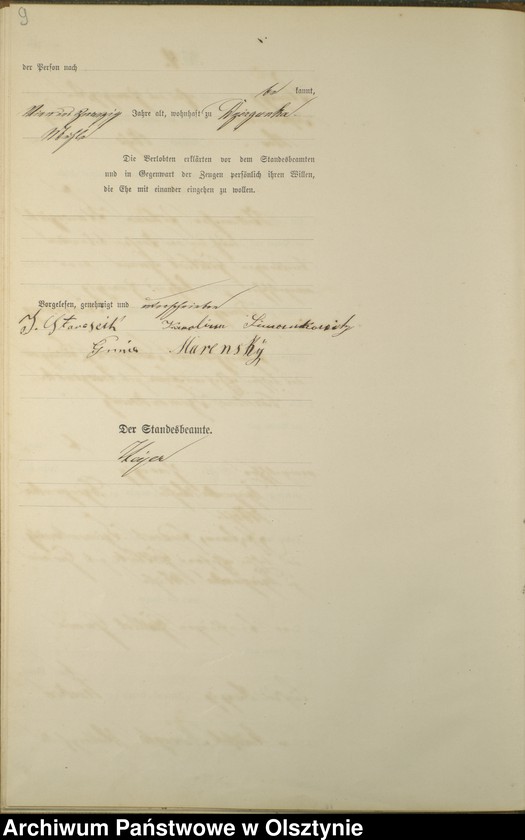 9
der Person nach
be kannt,
Jahre alt, wohnhaft zu
Mühle
Die Verlobten erklärten vor dem Standesbeamten
und in Gegenwart der Zeugen persönlich ihren Willen,
die Ehe mit einander eingehen zu wollen.
Vorgelesen, genehmigt und unterschrieben
Karolina
Murensky
Der Standesbeamte.
Archiwum Państwowe w Olsztynie